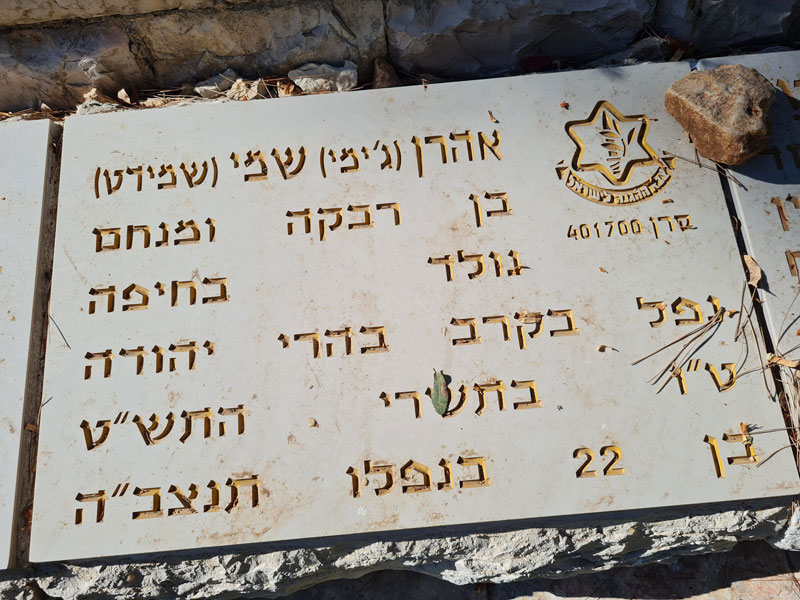 צבא ההגנה לישראל
סרן 401700
אהרן (ג'ימי) שמי (שמידט)
בן רבקה ומנחם
נולד בחיפה
נפל בקרב בהרי יהודה
ט"ו בתשרי התש"ט
בן 22 בנפלו תנצב"ה